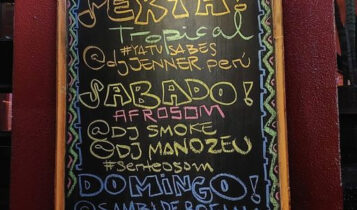 SEXTA!
Tropical
#YATUSABES
@djJENNER perú
SABADO!
AFROSOM
@DJ SMOKE
@DJ MANOZEU
#senteosom
DOMINGO!